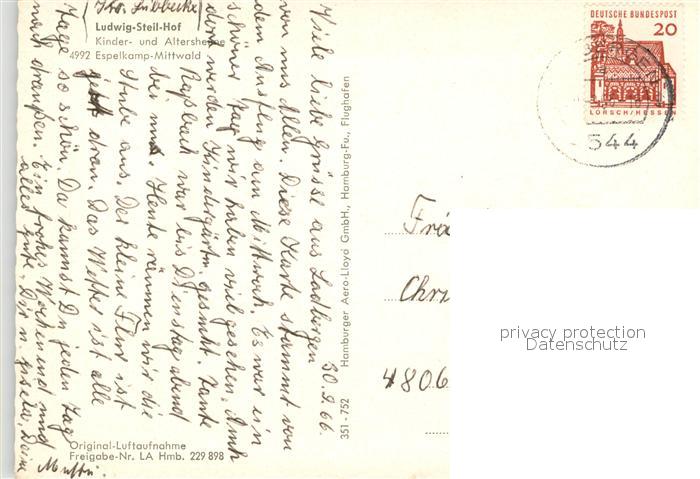 (Krs. Lübbecke)
Ludwig-Steil-Hof
Kinder- und Altersheime
4992 Espelkamp-Mittwald
DEUTSCHE BUNDESPOST
20
LORSCH/HESSEN
544
30.9.66.
Viele liebe Grüsse aus Ladbergen
von uns Allen. Diese Karte stammt von
dem Ausflug am Mittwoch. Es war ein
schöner Tag wir haben viel gesehen. Auch
dort werden Kindergärtn. gesucht. Tante
war bis Dienstag abend
bei uns. Heute räumen wir die
Stube aus. Der kleine Flur ist
jetzt dran. Das Wetter ist alle
Tage so schön. Da kannst Du jeden Tag
nach draußen. Ein frohes Wochenend und
alles gute, Dir u. Gisela, Deine
Mutti.
351-752 Hamburger Aero-Lloyd GmbH., Hamburg-Fu., Flughafen
Chri
4806
privacy protection
Datenschutz
Original-Luftaufnahme
Freigabe-Nr. LA Hmb. 229 898